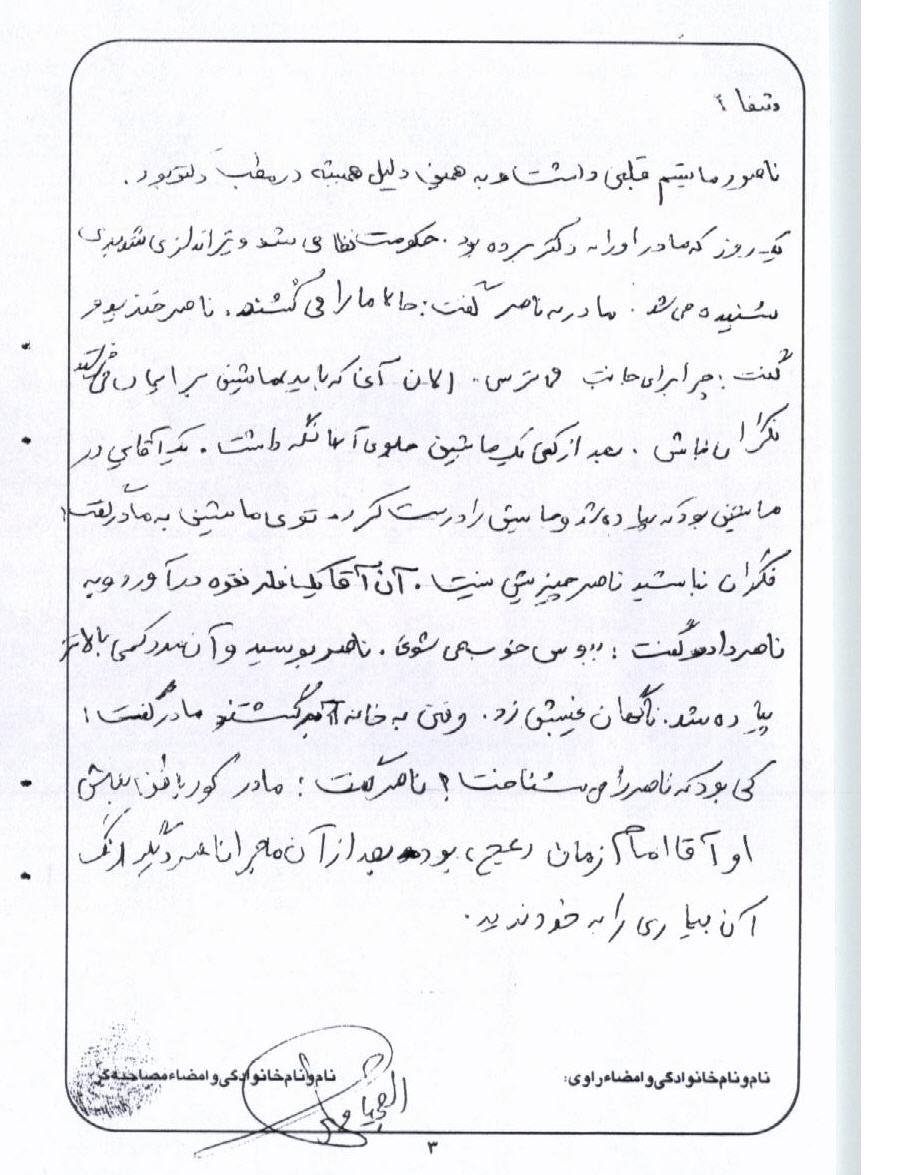 شفا :
ناصر رماتیسم قلبی داشت و به همین دلیل همیشه در مطب دکتر بود.
یک روز که مادر او را به دکتر برده بود. حکومت نظامی شد و تیراندازی شدیدی
شنیده می شد. مادر به ناصر گفت: حالا ما را می کُشند. ناصر خندید و
گفت: چرا برای جانت می ترسی. الان آقا که باید ماشین برایمان می
نگران نباش. بعد از کمی یک ماشین جلوی آنها نگه داشت. یک آقایی در
ماشین بود که پیاده شد و ماشین را درست کرد توی ماشین به مادر گفت:
نگران نباشید ناصر چیزیش نیست. آن آقا یک نقره درآورد و به
ناصر داد و گفت: ببوس خوب می شوی. ناصر بوسید و آن مرد کمی بالاتر
پیاده شد. ناگهان غیبش زد. وقتی به خانه برگشتند مادر گفت:
کی بود که ناصر را می شناخت؟ ناصر گفت: مادر کور باطن نباش
او آقا امام زمان (عج) بود. بعد از آن ماجرا ناصر دیگر رنگ
آن بیماری را به خود ندید.
نام و نام خانوادگی و امضاء راوی:
نام و نام خانوادگی و امضاء مصاحبه گر
۳